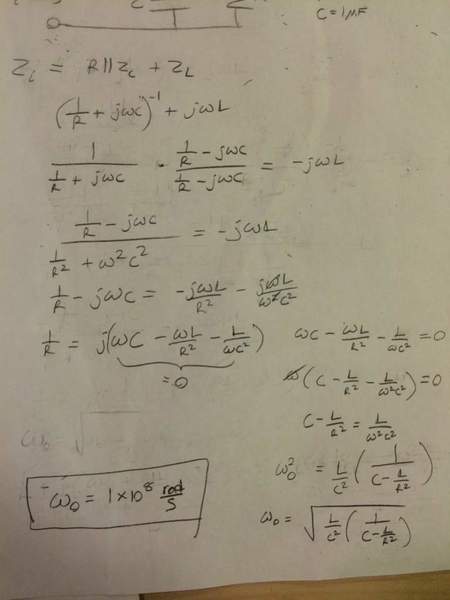 C = 1μF
Z_i = R||Z_c + Z_L
(1/R + jωC)^-1 + jωL
1/(1/R + jωC) · (1/R - jωC)/(1/R - jωC) = -jωL
(1/R - jωC)/(1/R² + ω²C²) = -jωL
1/R - jωC = -jωL/R² - jωL/ω²C²
1/R = j(ωC - ωL/R² - L/ωC²)
=0
ωC - ωL/R² - L/ωC² = 0
ω(C - L/R² - L/ω²C²) = 0
C - L/R² = L/ω²C²
ω₀² = L/C² (1/(C - L/R²))
ω₀ = √(L/C² (1/(C - L/R²)))
ω₀ = 1×10⁸ rad/s